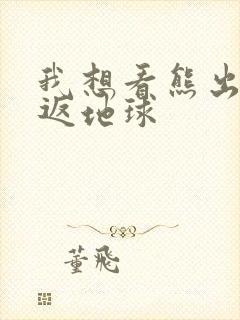 我想看熊出
返地球
董飛